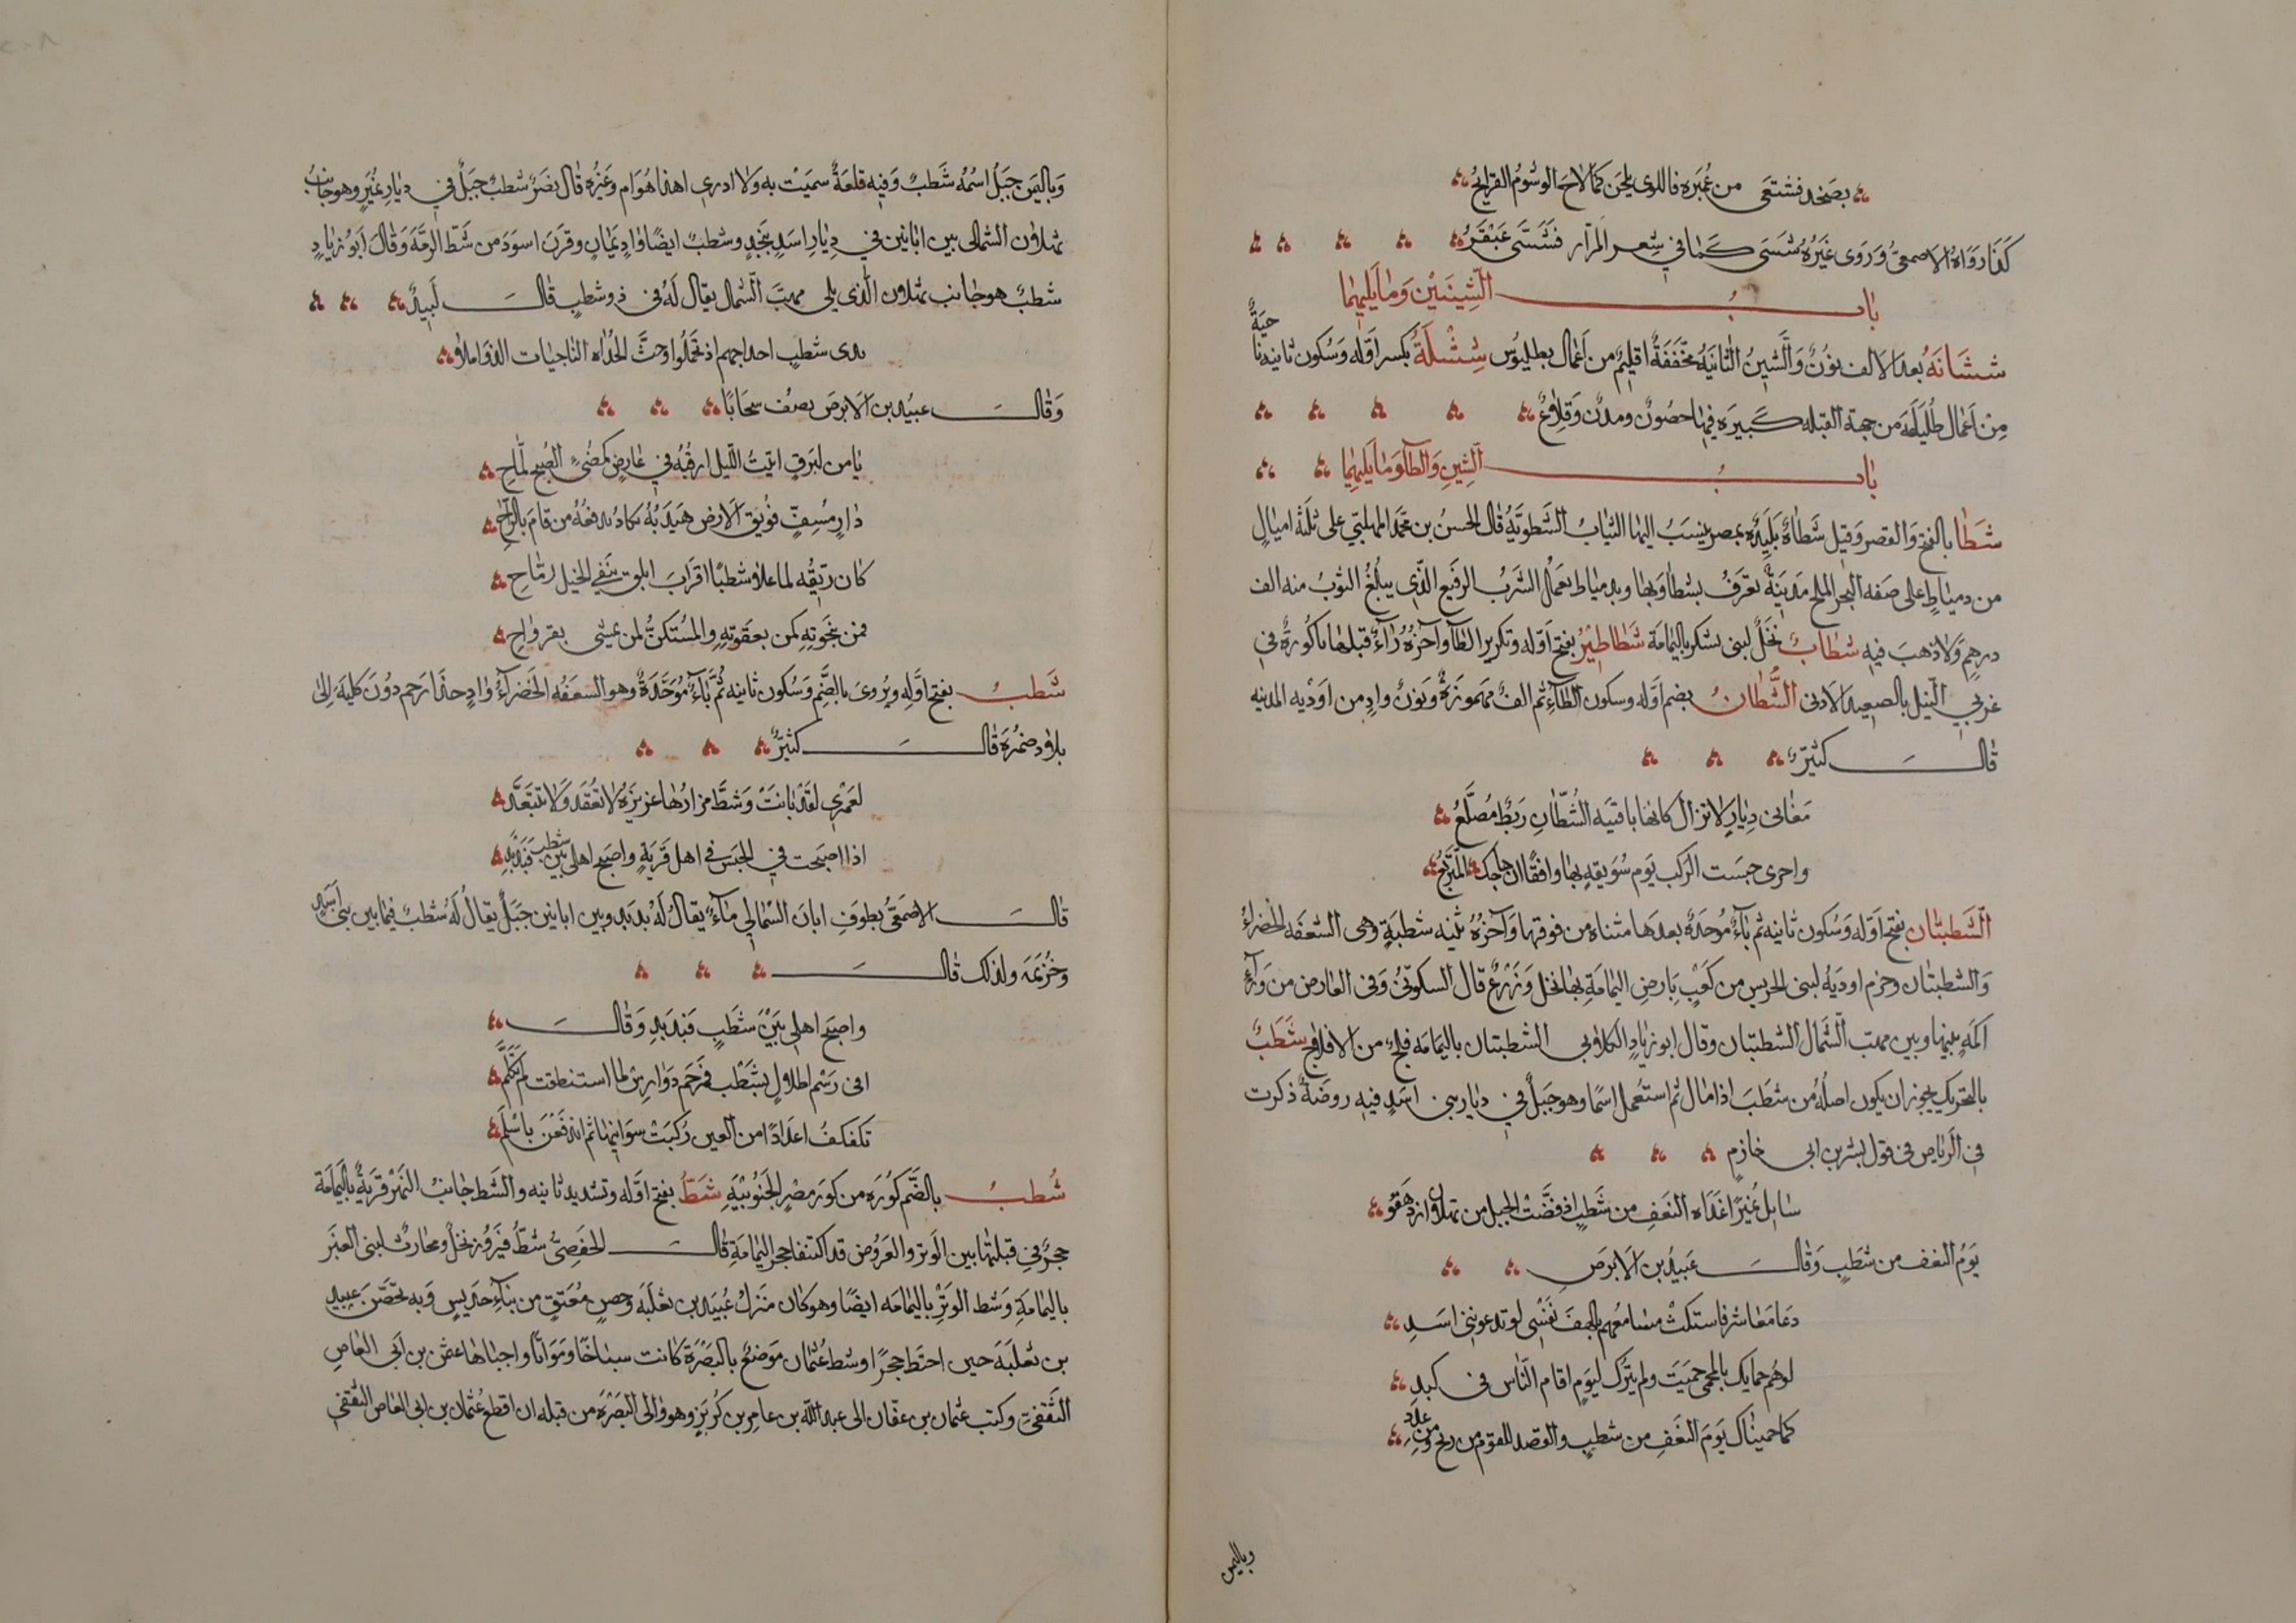 بصحد فشتعى من غبره فاللوى يلحن كما لاح الوشوم القرايح
كذا رواه الاصمعي وروى غيره شسى كما في شعر المرار فشسى عبقر
باب الشينين وما يليهما
ششانه بعد الالف نون والشين الثانية مخففة اقليم من اعمال بطليوس ششلة بكسر اوله وسكون ثانيه ناحية
من اعمال طليلة من جهة القبله كبيره فيها حصون ومدن وقلاع
باب الشين والطآ وما يليهما
شطا بالفتح والقصر وقيل شطاة بليده بمصر ينسب اليها الثياب الشطوية قال الحسن بن محمد المهلبي على ثلثة اميال
من دمياط على ضفه البحر الملح مدينة تعرف بشطا وبها وبدمياط يعمل الشرب الرفيع الذي يبلغ الثوب منه الف
درهم ولا ذهب فيه شطاب نخل لبنى يشكر باليمامة شطاطير بفتح اوله وتكرير الطآ وآخره رآء قبلها يا كورة في
غربي النيل بالصعيد الادنى الشطان بضم اوله وسكون الطآء ثم الف مهموزة ونون واد من اودية المدينه
قال كثير
مغانى ديار لا تزال كانها بافنيه الشطان ريط مضلع
واخرى حبست الركب يوم سويقة بها واقفا ان هاجك المتربع
الشطبتان بفتح اوله وسكون ثانيه ثم بآء موحده بعدها مثناه من فوقها وآخره تثنيه شطبة وهى السعفه الخضراء
والشطبتان وحزم اوديه لبنى الحريس من كعب بارض اليمامة بها نخل وزرع قال السكونى وفى العارض من ورآء
اكمه بينها وبين مهب الشمال الشطبتان وقال ابو زياد الكلابى الشطبتان باليمامه فلج من الافلاج شطب
بالتحريك يجوز ان يكون اصله من شطب اذا مال ثم استعمل اسما وهو جبل في ديار بنى اسد فيه روضة ذكرت
في الرياض فى قول بشر بن ابى خازم
سايل نميرا غداه النعف من شطب اذ فضت الخيل من ثهلان اذ رهقو
يوم النعف من شطب وقال عبيد بن الابرص
دعا معاشر فاستكت مسامعهم يا لهف نفسى لو تدعو بنى اسد
لو هم حماتك بالمحمى حميت ولم يترك ليوم اقام الناس فى كبد
كما حميناك يوم النعف من شطب والقصد للقوم من ريح ومن عدد
وباليمن
وباليمن جبل اسمه شطب وفيه قلعة سميت به ولا ادرى اهذا هو ام غيره قال نصر شطب جبل في ديار نمير وهو جانب
ثهلان الشمالى بين ابانين في ديار اسد بنجد وشطب ايضا واد يمان وقرن اسود من شط الرمة وقال ابو زياد
شطب هو جانب ثهلان الذى يلى مهب الشمال يقال له فى ذو شطب قال لبيد
بذى شطب احداجهم اذ تحملوا وحث الحداه الناجيات الذواملا
وقال عبيد بن الابرص يصف سحابا
يا من لبرق ابيت الليل ارقبه في عارض كمضىء الصبح لماح
دان مسف فويق الارض هيدبه يكاد يدفعه من قام بالراح
كان ريقه لما علا شطبا اقراب ابلق ينفى الخيل رماح
فمن بنجوته كمن بعقوته والمستكن كمن يمشى بقرواح
شطب بفتح اوله ويروى بالضم وسكون ثانيه ثم بآء موحدة وهو السعفه الخضرآء واد حذا رحم دون كلية الى
بلاد ضمرة قال كثير
لعمرى لقد بانت وشط مزارها عزيزه لا تفقد ولا تتبعد
اذا اصبحت في الجبس في اهل قرية واصبح اهلى بين شطب فبدبد
قال الاصمعى بطوف ابان الشمالي مآء يقال له بدبد وبين ابانين جبل يقال له شطب فيما بين بنى اسد
وخزيمة ولذلك قال
واصبح اهلى بين شطب فبدبد وقال
افى رسم اطلال بشطب فرجم دوارس لما استنطقت لم تكلم
تكفكف اعدادا من العين ركبت سوانيها ثم اندفعن باسلم
شطب بالضم كورة من كور مصر الجنوبية شط بفتح اوله وتشديد ثانيه والشط جانب النهر قرية باليمامة
حجر في قبلتها بين الوتر والعروض قد اكتنفا حجر اليمامة قال الحفصى شط فيروز نخل ومحارث لبنى العنبر
باليمامة وشط الوتر باليمامه ايضا وهو كان منزل عبيد بن ثعلبة وحصن معتق من بنآء جديس وبه تحصن عبيد
بن ثعلبة حين احتط حجرا وشط عثمان موضع بالبصرة كانت سباخا ومواتا واحياها عثمن بن ابى العاص
الثقفى وكتب عثمان بن عفان الى عبد الله بن عامر بن كريز وهو والى البصرة من قبله ان اقطع عثمان بن ابى العاص الثقفي